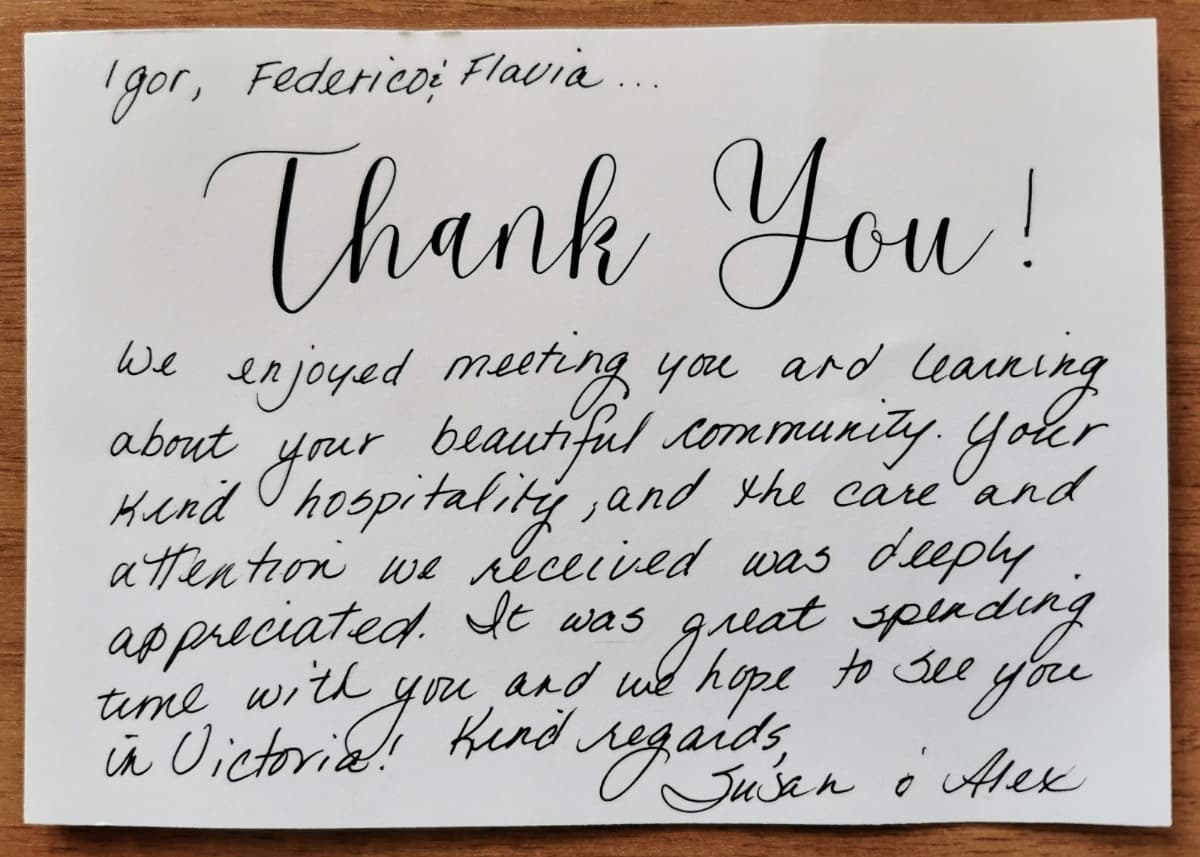 Igor, Federico & Flavia ...
Thank You!
We enjoyed meeting you and learning
about your beautiful community. Your
kind hospitality, and the care and
attention we received was deeply
appreciated. It was great spending
time with you and we hope to see you
in Victoria! Kind regards,
Susan & Alex